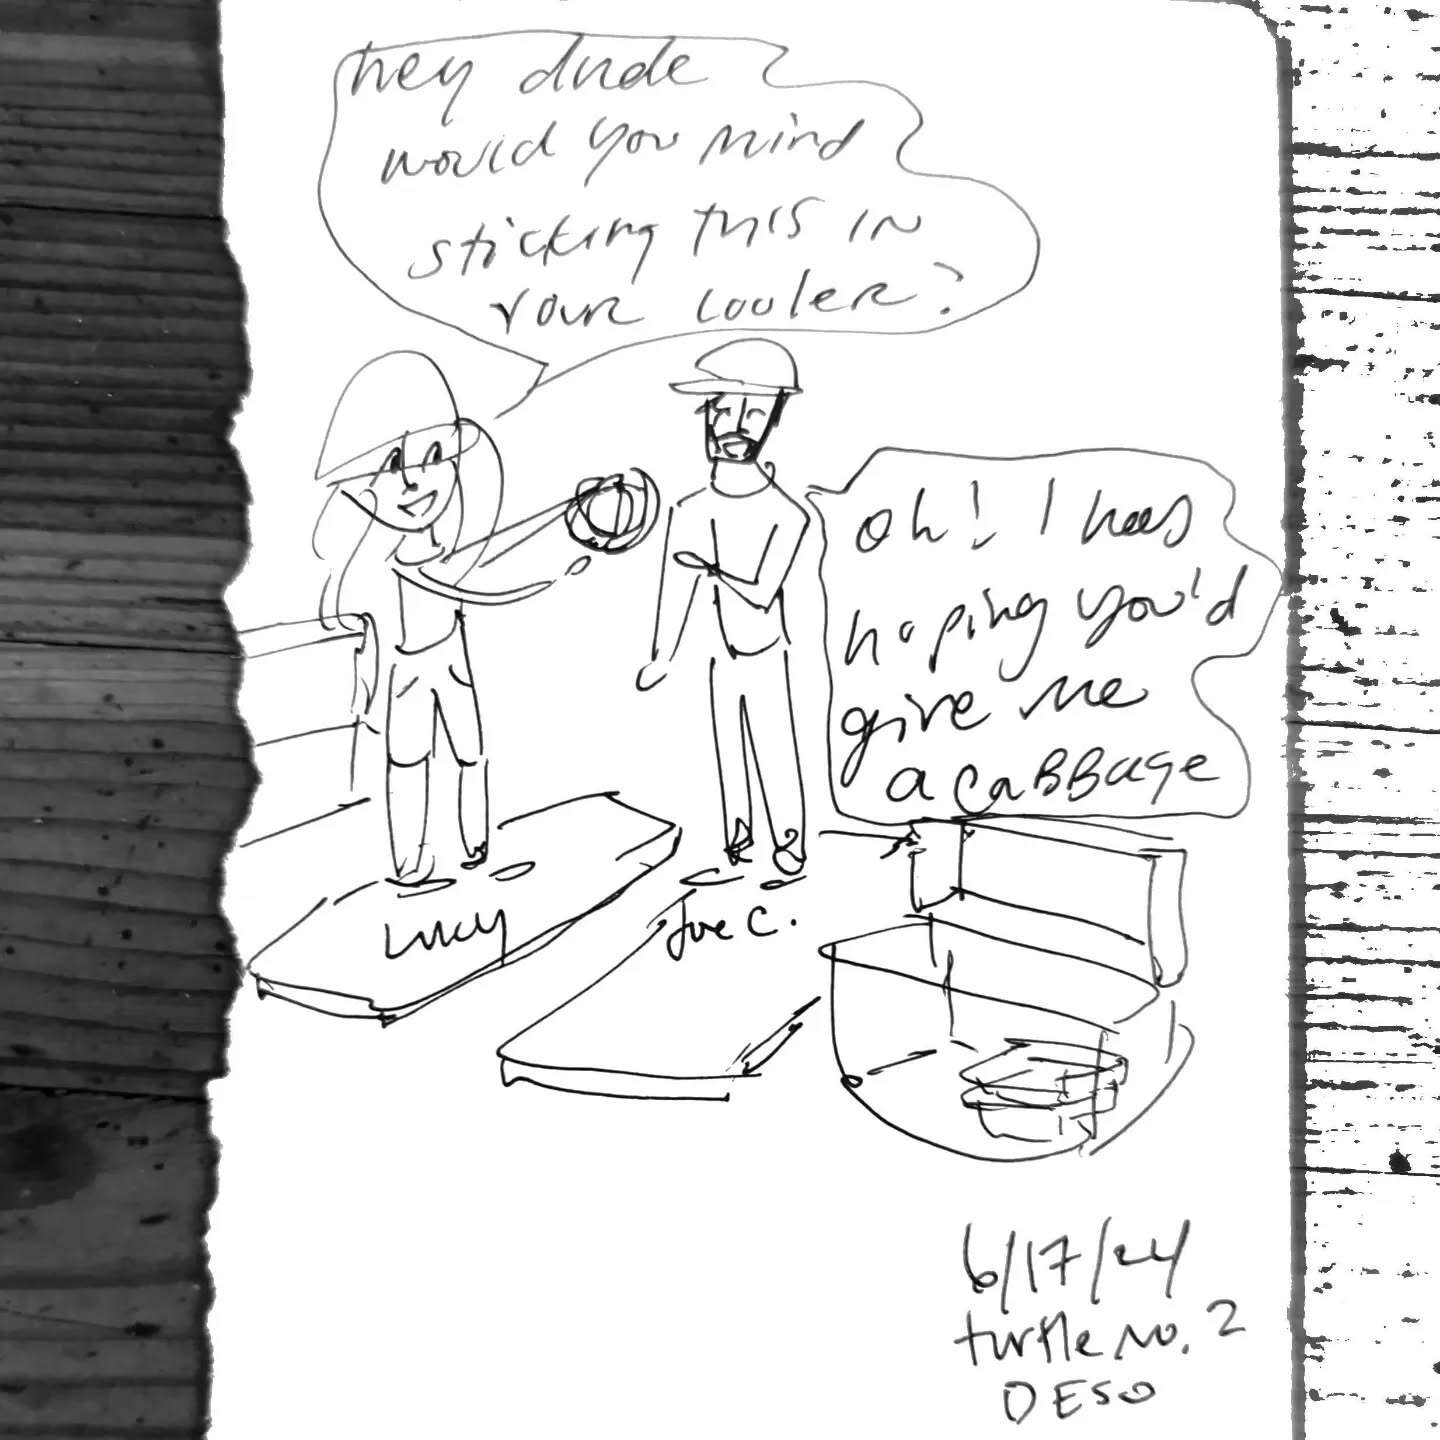 hey dude
would you mind
sticking this in
your cooler?
oh! I was
hoping you'd
give me
a cabbage
Lucy
Joe C.
6/17/24
turtle no. 2
DESO